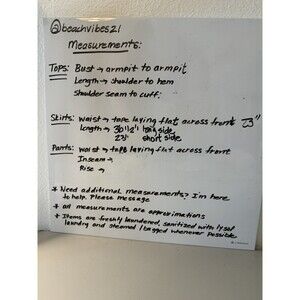 @beachvibes21
Measurements:
Tops: Bust → armpit to armpit
Length → shoulder to hem
Shoulder seam to cuff:
Skirts: Waist → tape laying flat across front 23"
Length → 30 1/2" long side
23" short side
Pants: Waist → tape laying flat across front
Inseam →
Rise →
* Need additional measurements? I'm here
to help. Please message
* All measurements are approximations
* Items are freshly laundered, sanitized with lysol
laundry and steamed / bagged whenever possible